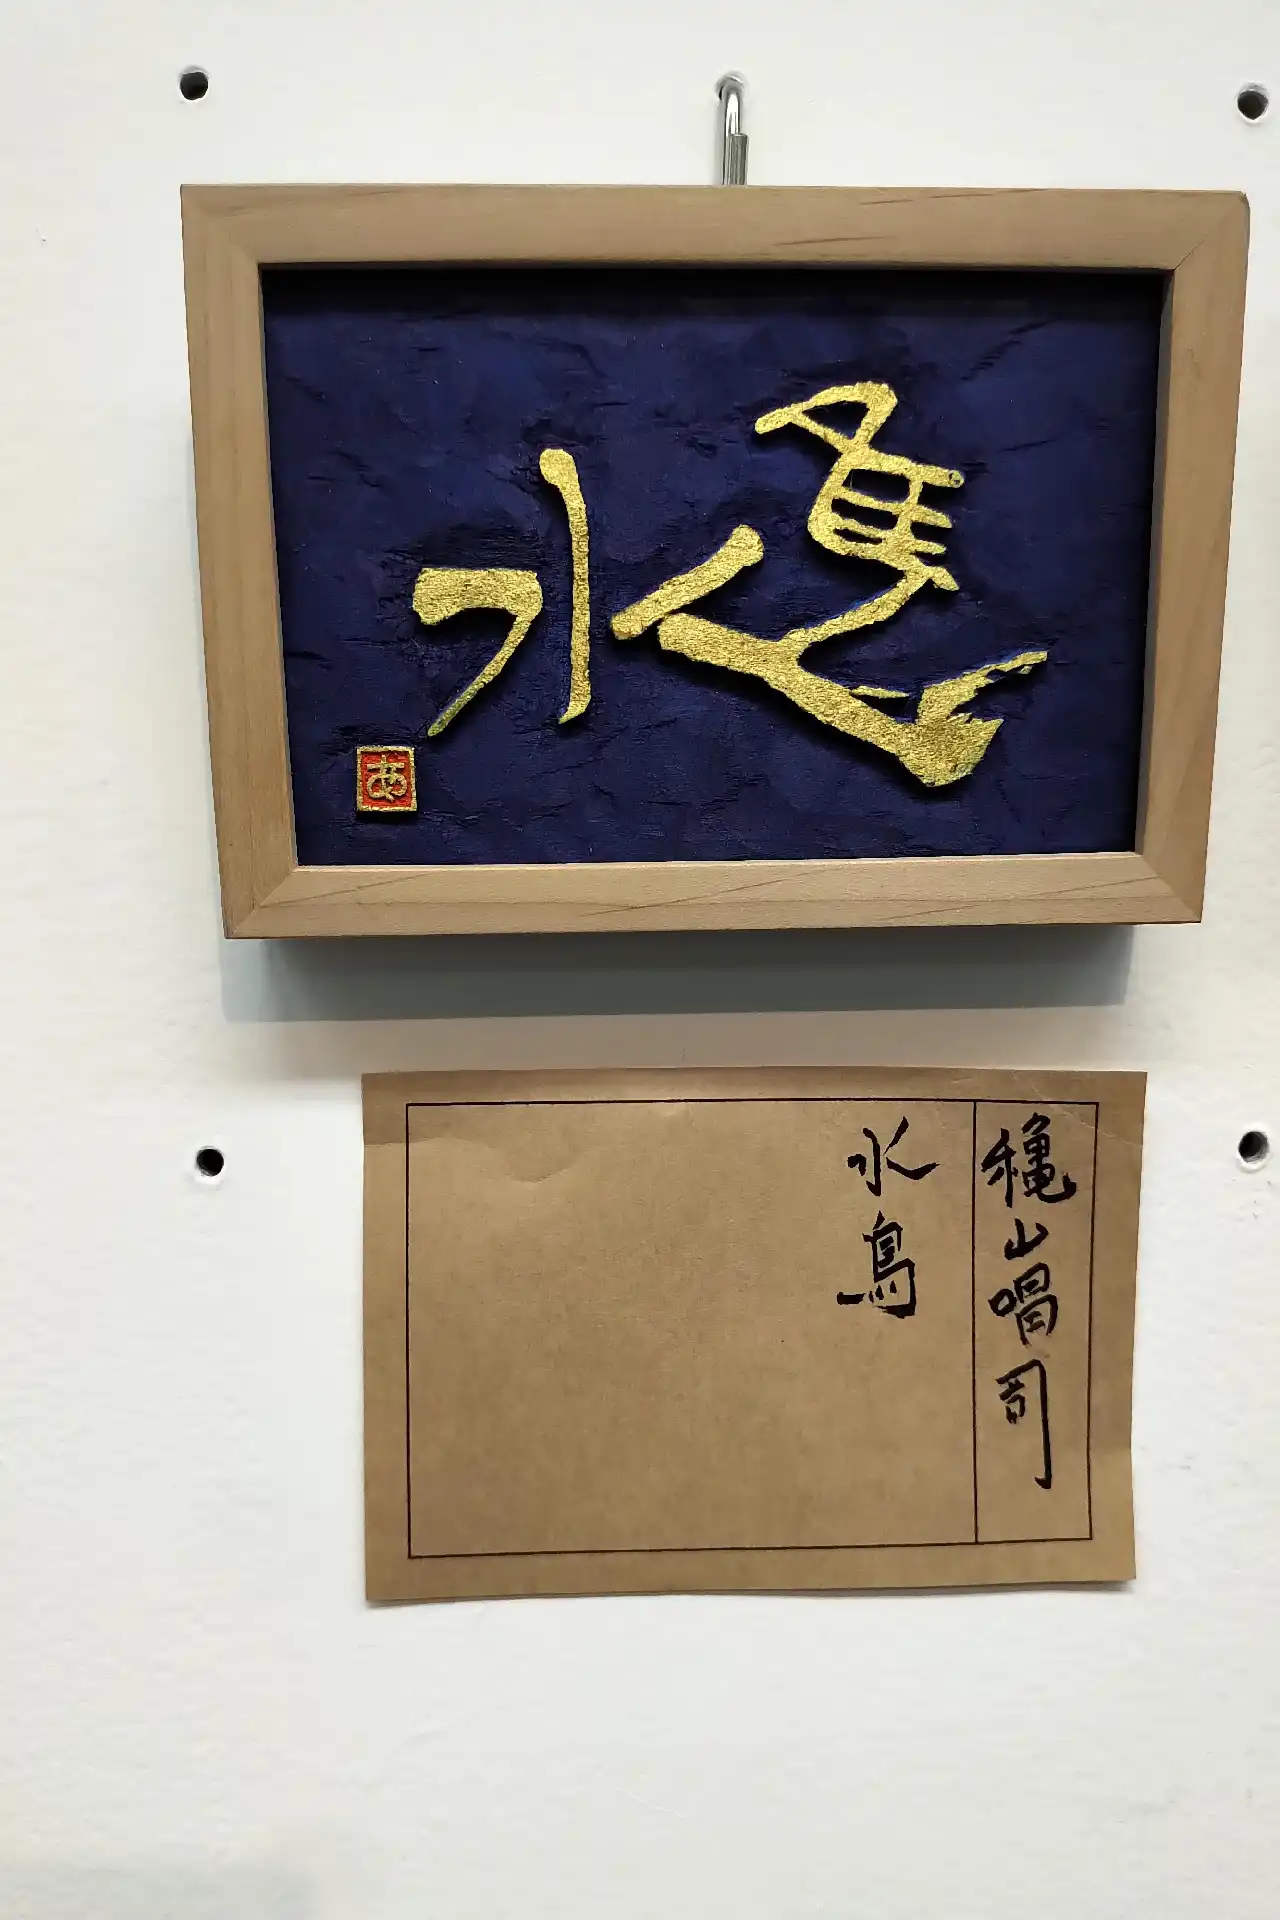 水鳥
あ
穐山唱司
水鳥